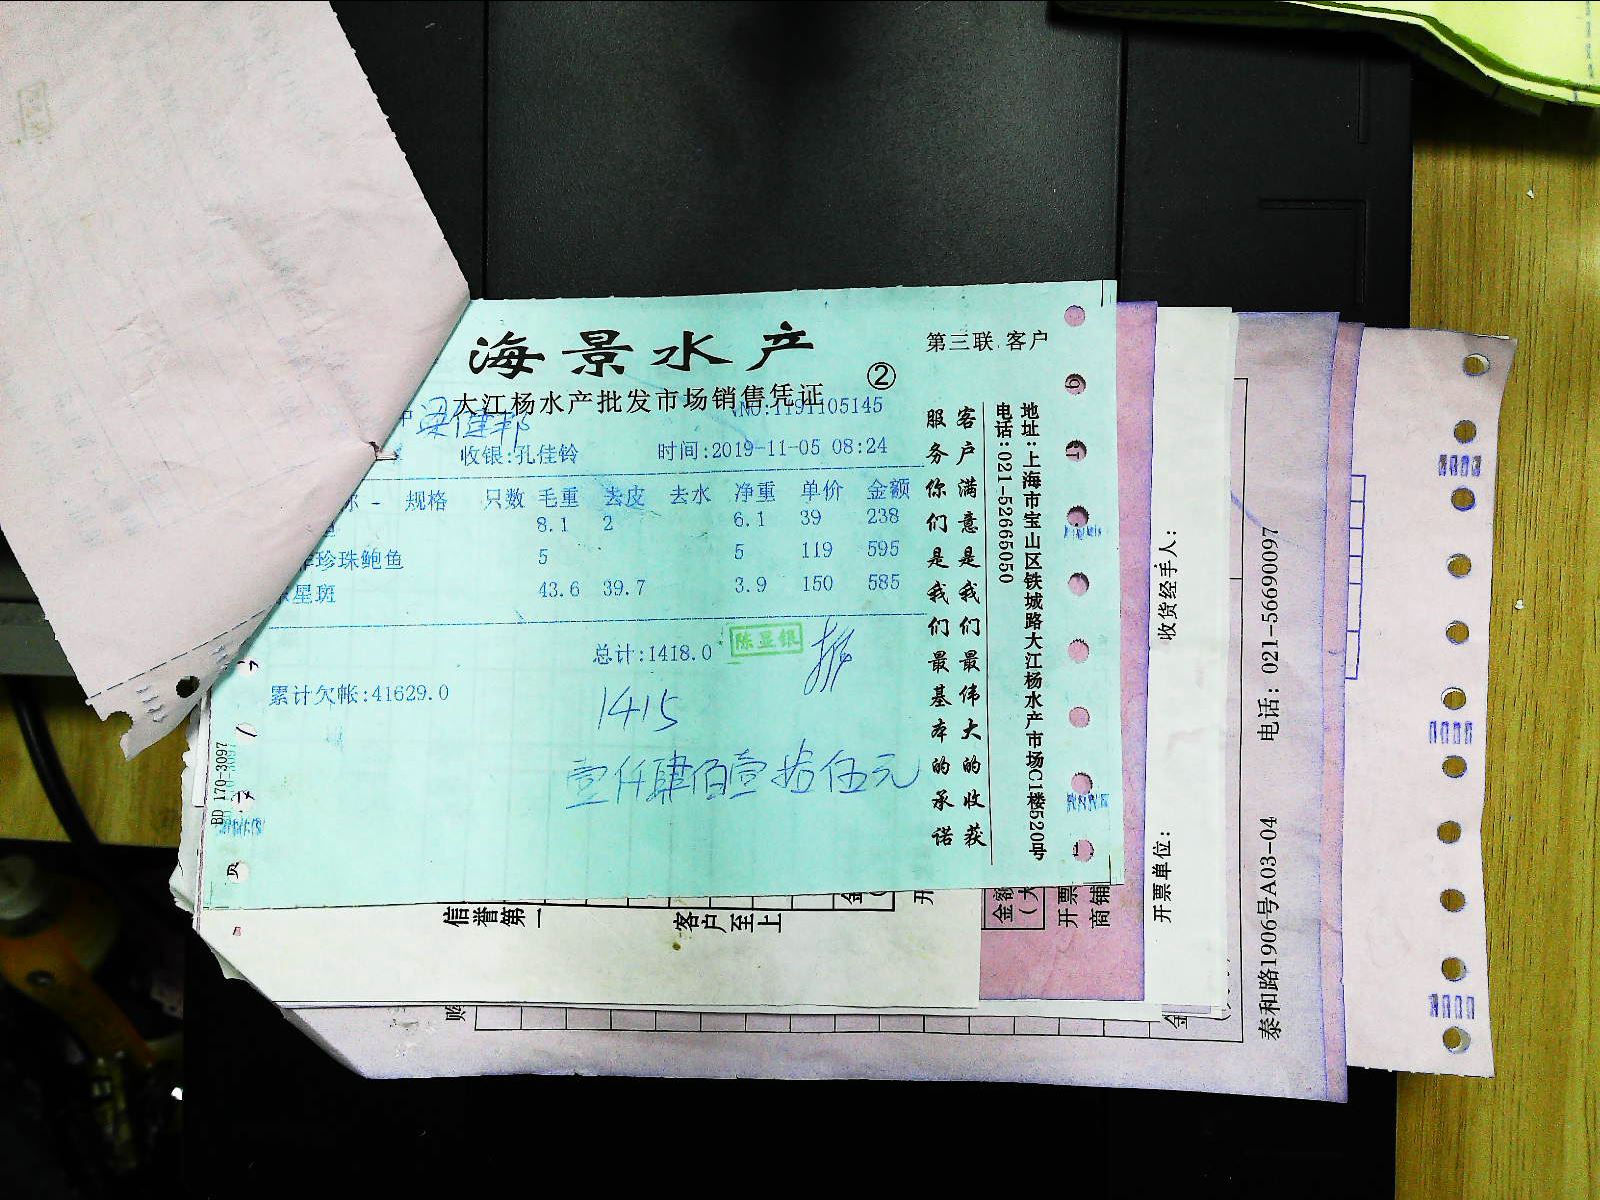 海景水产
第三联.客户
大江杨水产批发市场销售凭证
②
NO:1191105145
梁健邦
收银:孔佳铃
时间:2019-11-05 08:24
规格 只数 毛重 去皮 去水 净重 单价 金额
8.1 2 6.1 39 238
珍珠鲍鱼 5 5 119 595
星斑 43.6 39.7 3.9 150 585
总计:1418.0
陈显银
累计欠帐:41629.0
1415
壹仟肆佰壹拾伍元
客户满意是我们最伟大的收获
服务你们是我们最基本的承诺
地址:上海市宝山区铁城路大江杨水产市场C1楼520号
电话:021-52665050
BD 170-3097
信誉第一
客户至上
金额
(大
开票
商铺
收货经手人:
开票单位:
泰和路1906号A03-04
电话: 021-56690097